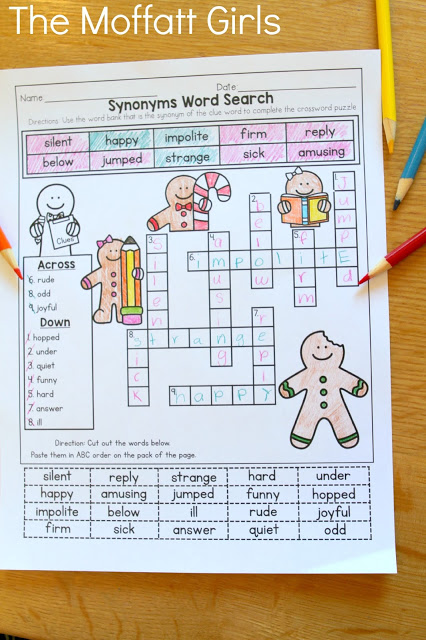 The Moffatt Girls
Name Date
Synonyms Word Search
Directions: Use the word bank that is the synonym of the clue word to complete the crossword puzzle
silent happy impolite firm reply
below jumped strange sick amusing
Clues
Across
6. rude
8. odd
9. joyful
Down
1. hopped
2. under
3. quiet
4. funny
5. hard
7. answer
8. ill
1. JumpEd
2. below
3. silent
4. amusing
5. firm
6. impolitE
7. reply
8. strange
sick
9. happy
Direction: Cut out the words below.
Paste them in ABC order on the pack of the page.
silent reply strange hard under
happy amusing jumped funny hopped
impolite below ill rude joyful
firm sick answer quiet odd